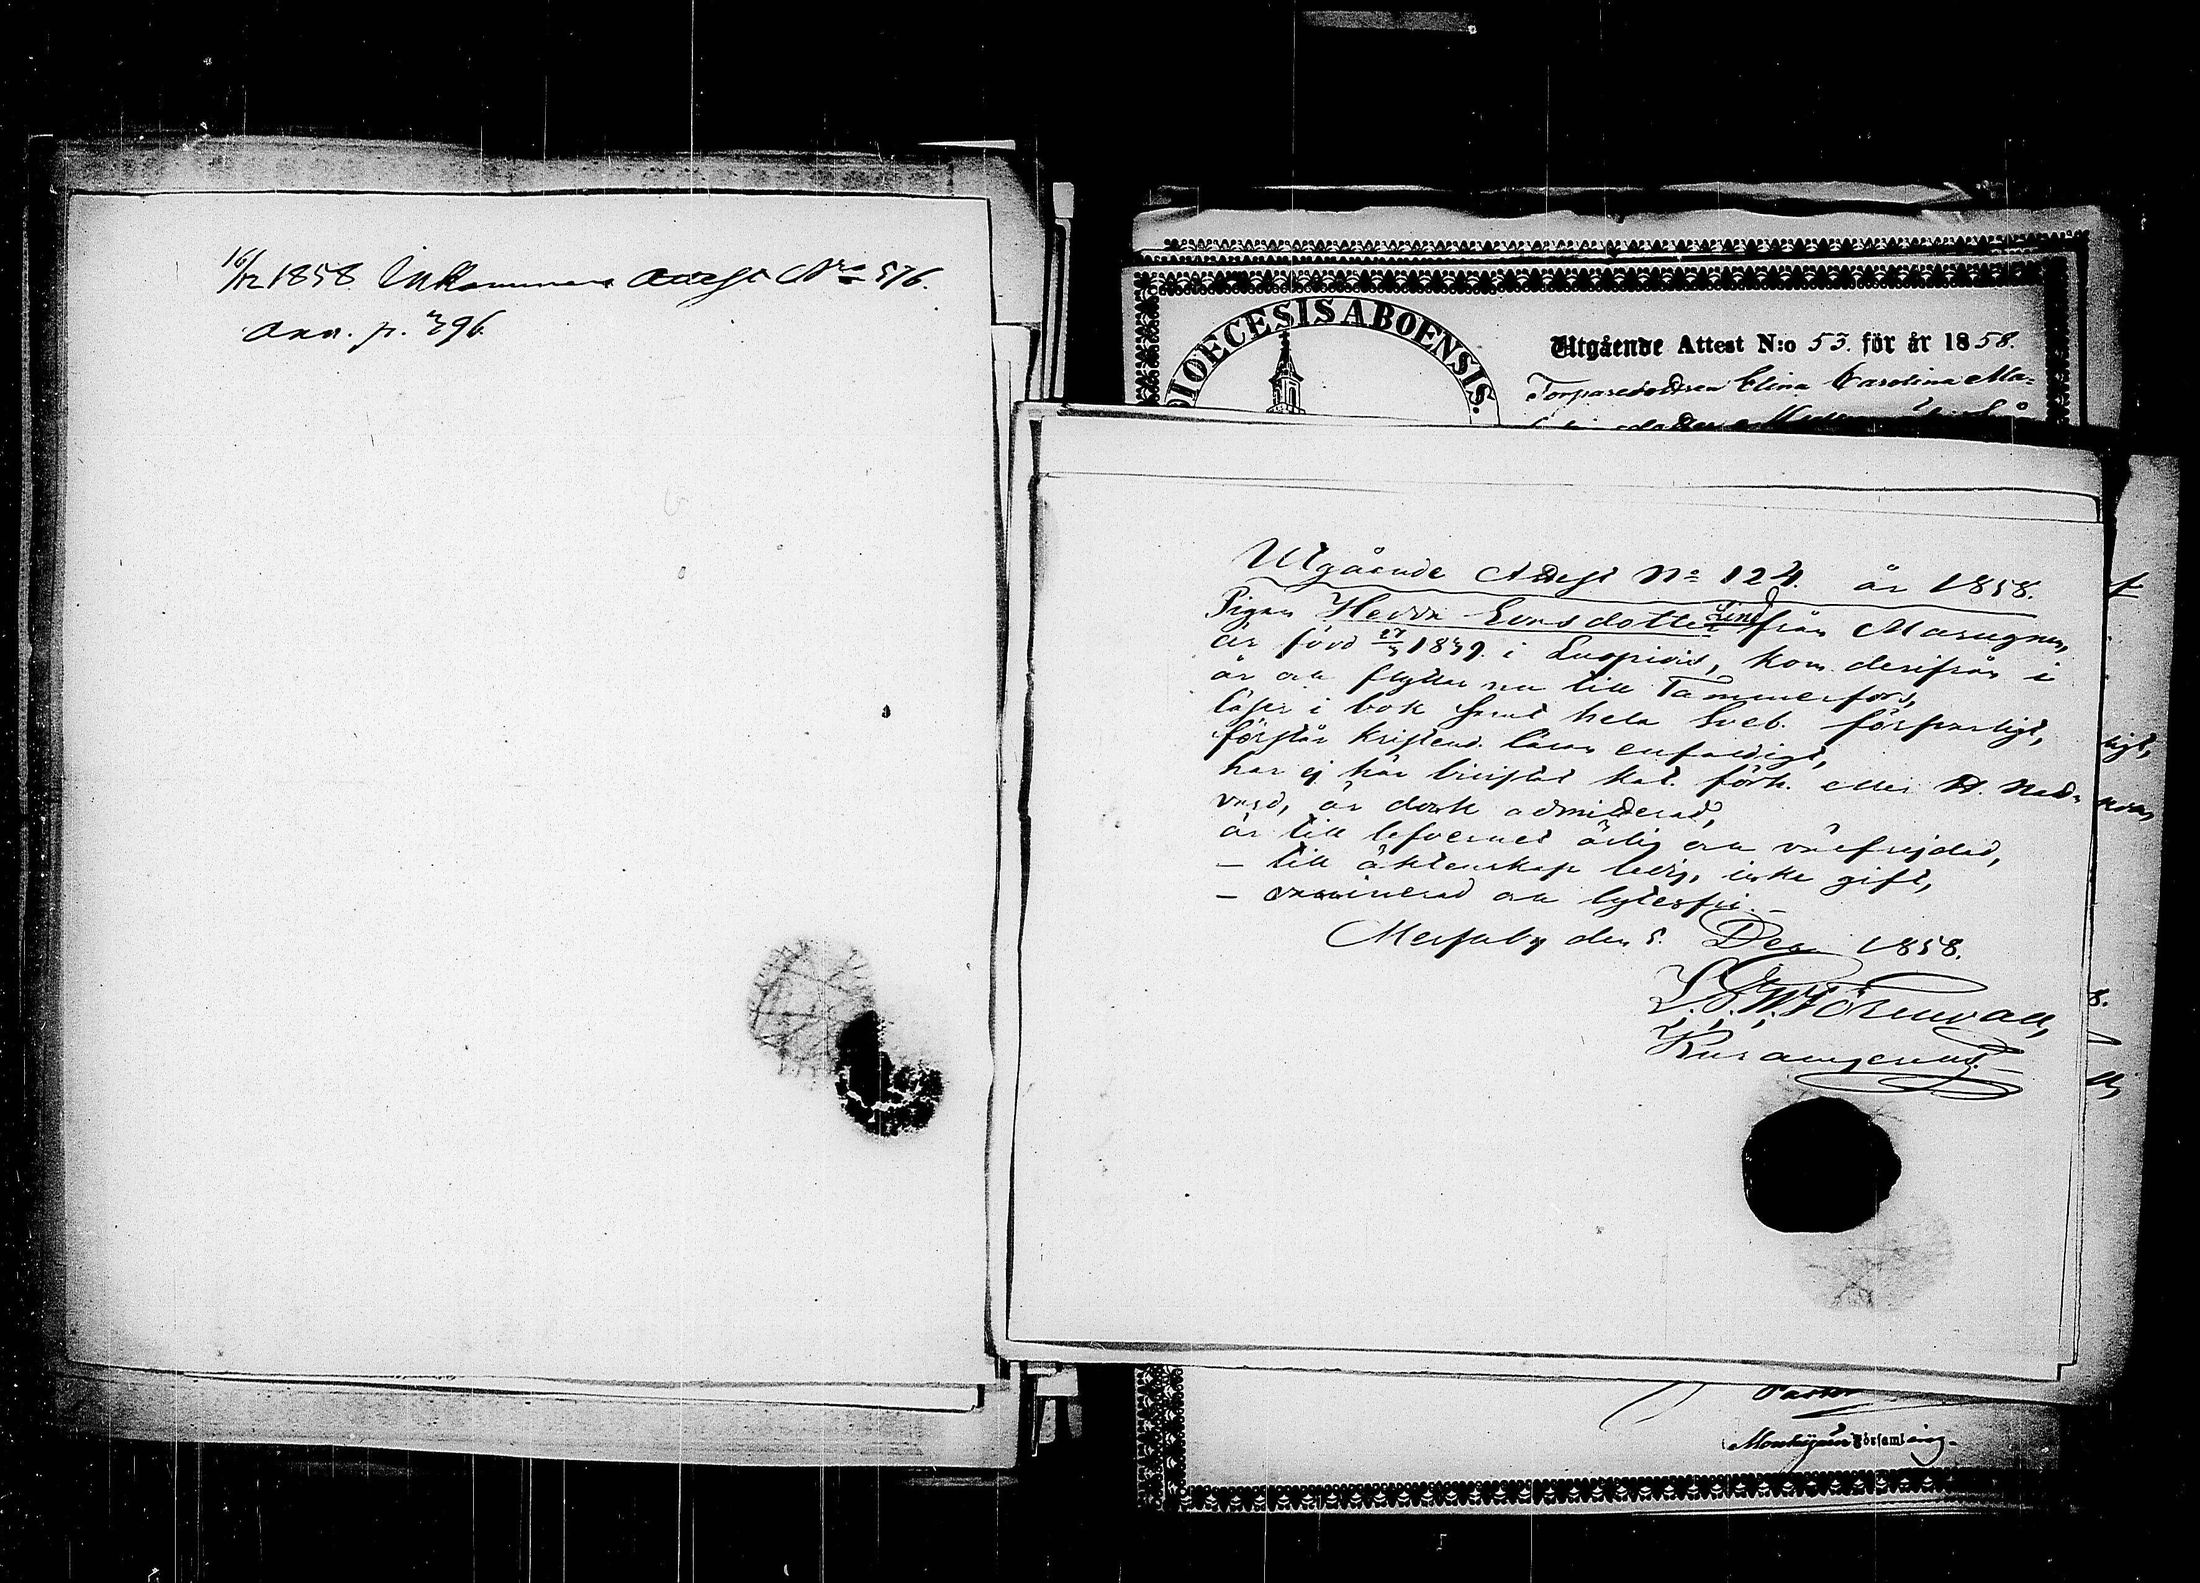 16/12 1858 Inkommande Attest Nro 576.
Ann. p. 396.
DIOECESIS ABOENSIS.
Utgående Attest N:o 53. för år 1858.
Torparedottren Elina Carolina Ma-
Utgående Attest No 124. år 1858.
Pigan Hedda Evasdotter Lind från Marugnen,
är född 27/3 1839 i Luopiois, kom derifrån i
år och flyttar nu till Tammerfors,
läser i bok samt hela Sveb. försvarligt,
förstår kristend. läran enfaldigt,
har ej här bivistat kat. förh. eller H. Natt-
vard, är dock admitterad,
är till lefvernet ärlig och välfrejdad,
— till äktenskap ledig, icke gift,
— vaccinerad och lytesfri.
Messuby den 5. Dec. 1858.
Pastor
Församling.